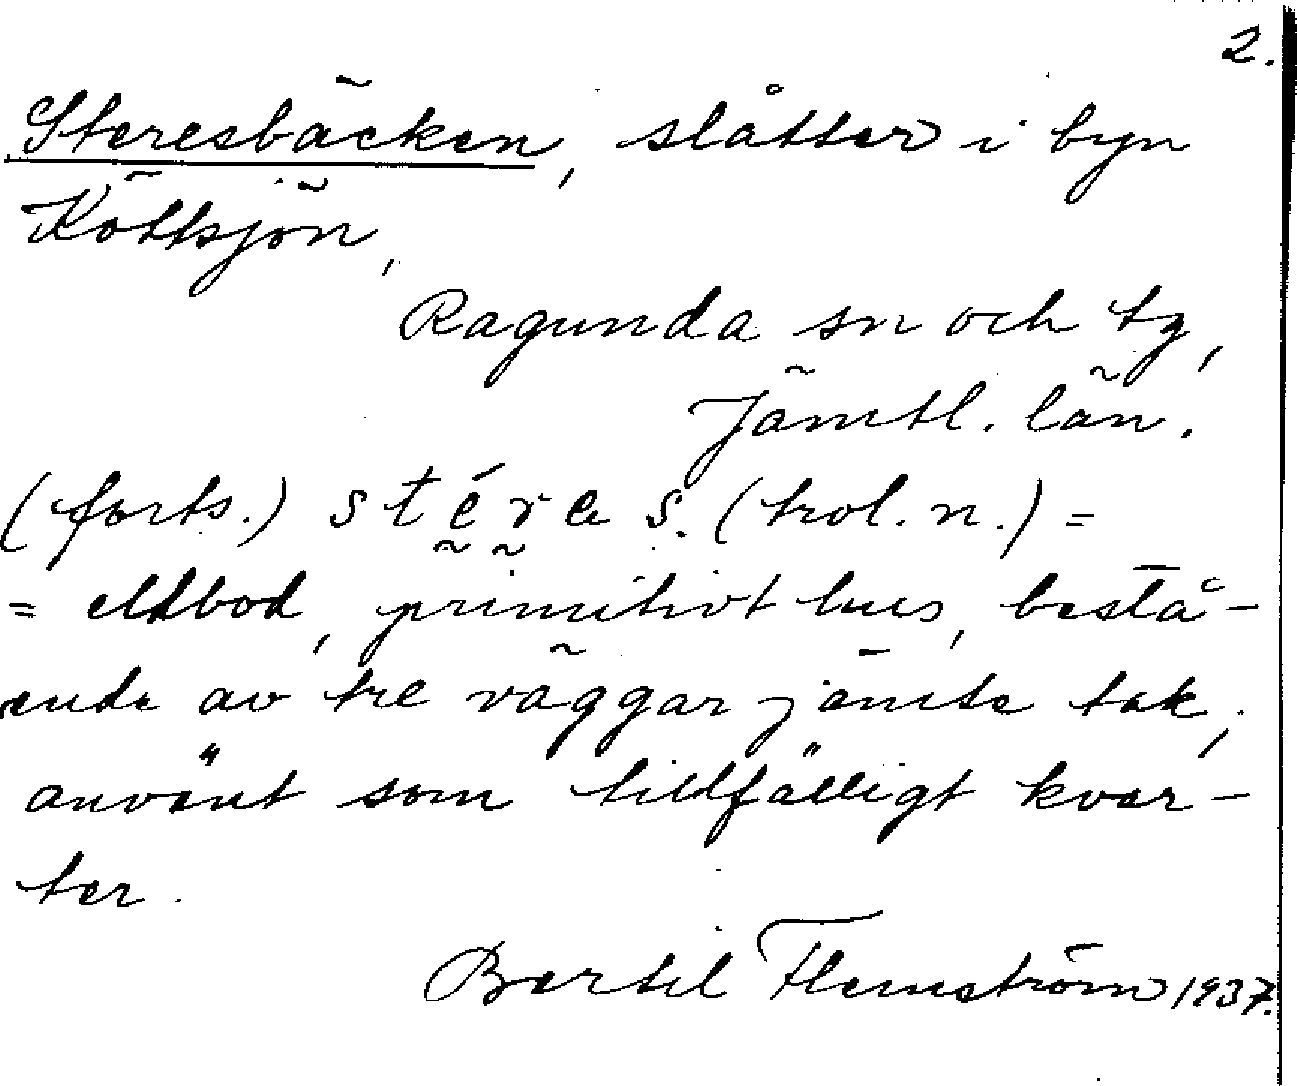 2.
Steresbäcken, slåtter i byn
Köttsjön,
Ragunda sn och tg,
Jämtl. län.
(forts.) stére s. (trol. n.) =
= eldbod, primitivt hus, bestå-
ende av tre väggar jämte tak,
använt som tillfälligt kvar-
ter.
Bertil Flemström 1937.